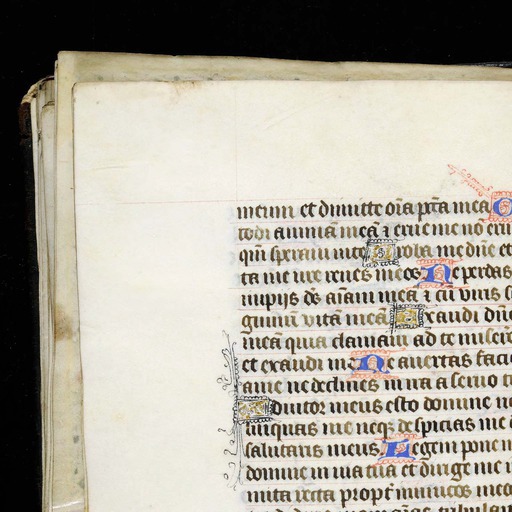 meum et dimitte oīa pctā mea C
todi animā meā ⁊ erue me nō eru
qm̄ speraui in te Proba me dn̄e et
ta me ure renes meos Ne perdas
impijs ds̄ aīam meā ⁊ cū viris s
guinū vitā meā Exaudi dn̄e
mea quia clamaui ad te misere
et exaudi me Ne auertas facie
a me ne declines in ira a seruo t
Adiutor meus esto domine ne
linquas me neqꝫ despicias me d
salutaris meus Legem pone m
domine in uia tua et dirige me i
mita recta propt̄ inimicos meo